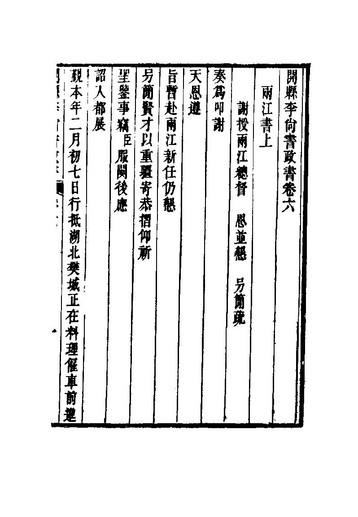 開縣李尙書政書卷六
兩江書上
謝授兩江總督 恩並懇 另簡疏
奏爲叩謝
天恩遵
旨暫赴兩江新任仍懇
另簡賢才以重疆寄恭摺仰祈
聖鑒事竊臣服闋後應
詔入都展
覲本年二月初七日行抵湖北樊城正在料理僱車前進